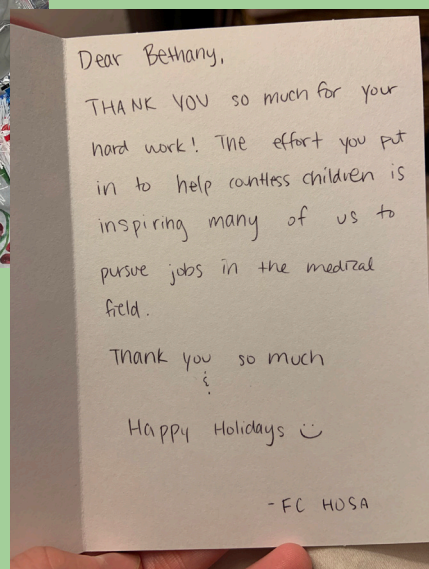 Dear Bethany,
THANK YOU so much for your
hard work! The effort you put
in to help countless children is
inspiring many of us to
pursue jobs in the medical
field.
Thank you so much
&
Happy Holidays :)
- FC HOSA